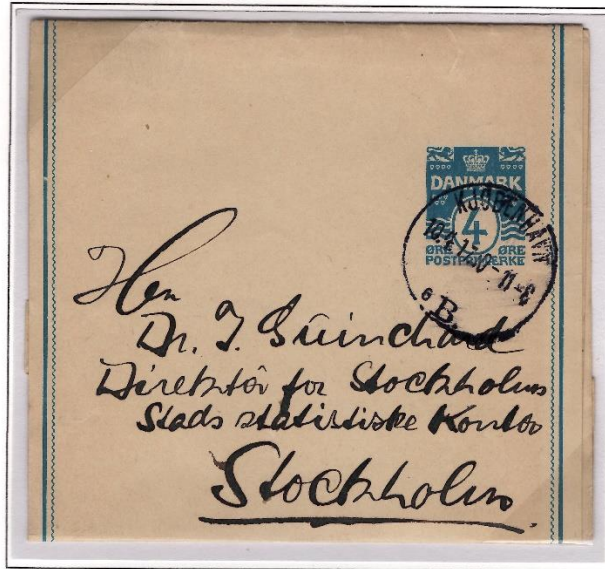 DANMARK
4
ØRE ØRE
POSTFRIMÆRKE
KJØBENHAVN
B.
Herr
Dr. J. Guinchard
Direktör for Stockholms
Stads statistiske Kontor
Stockholm.